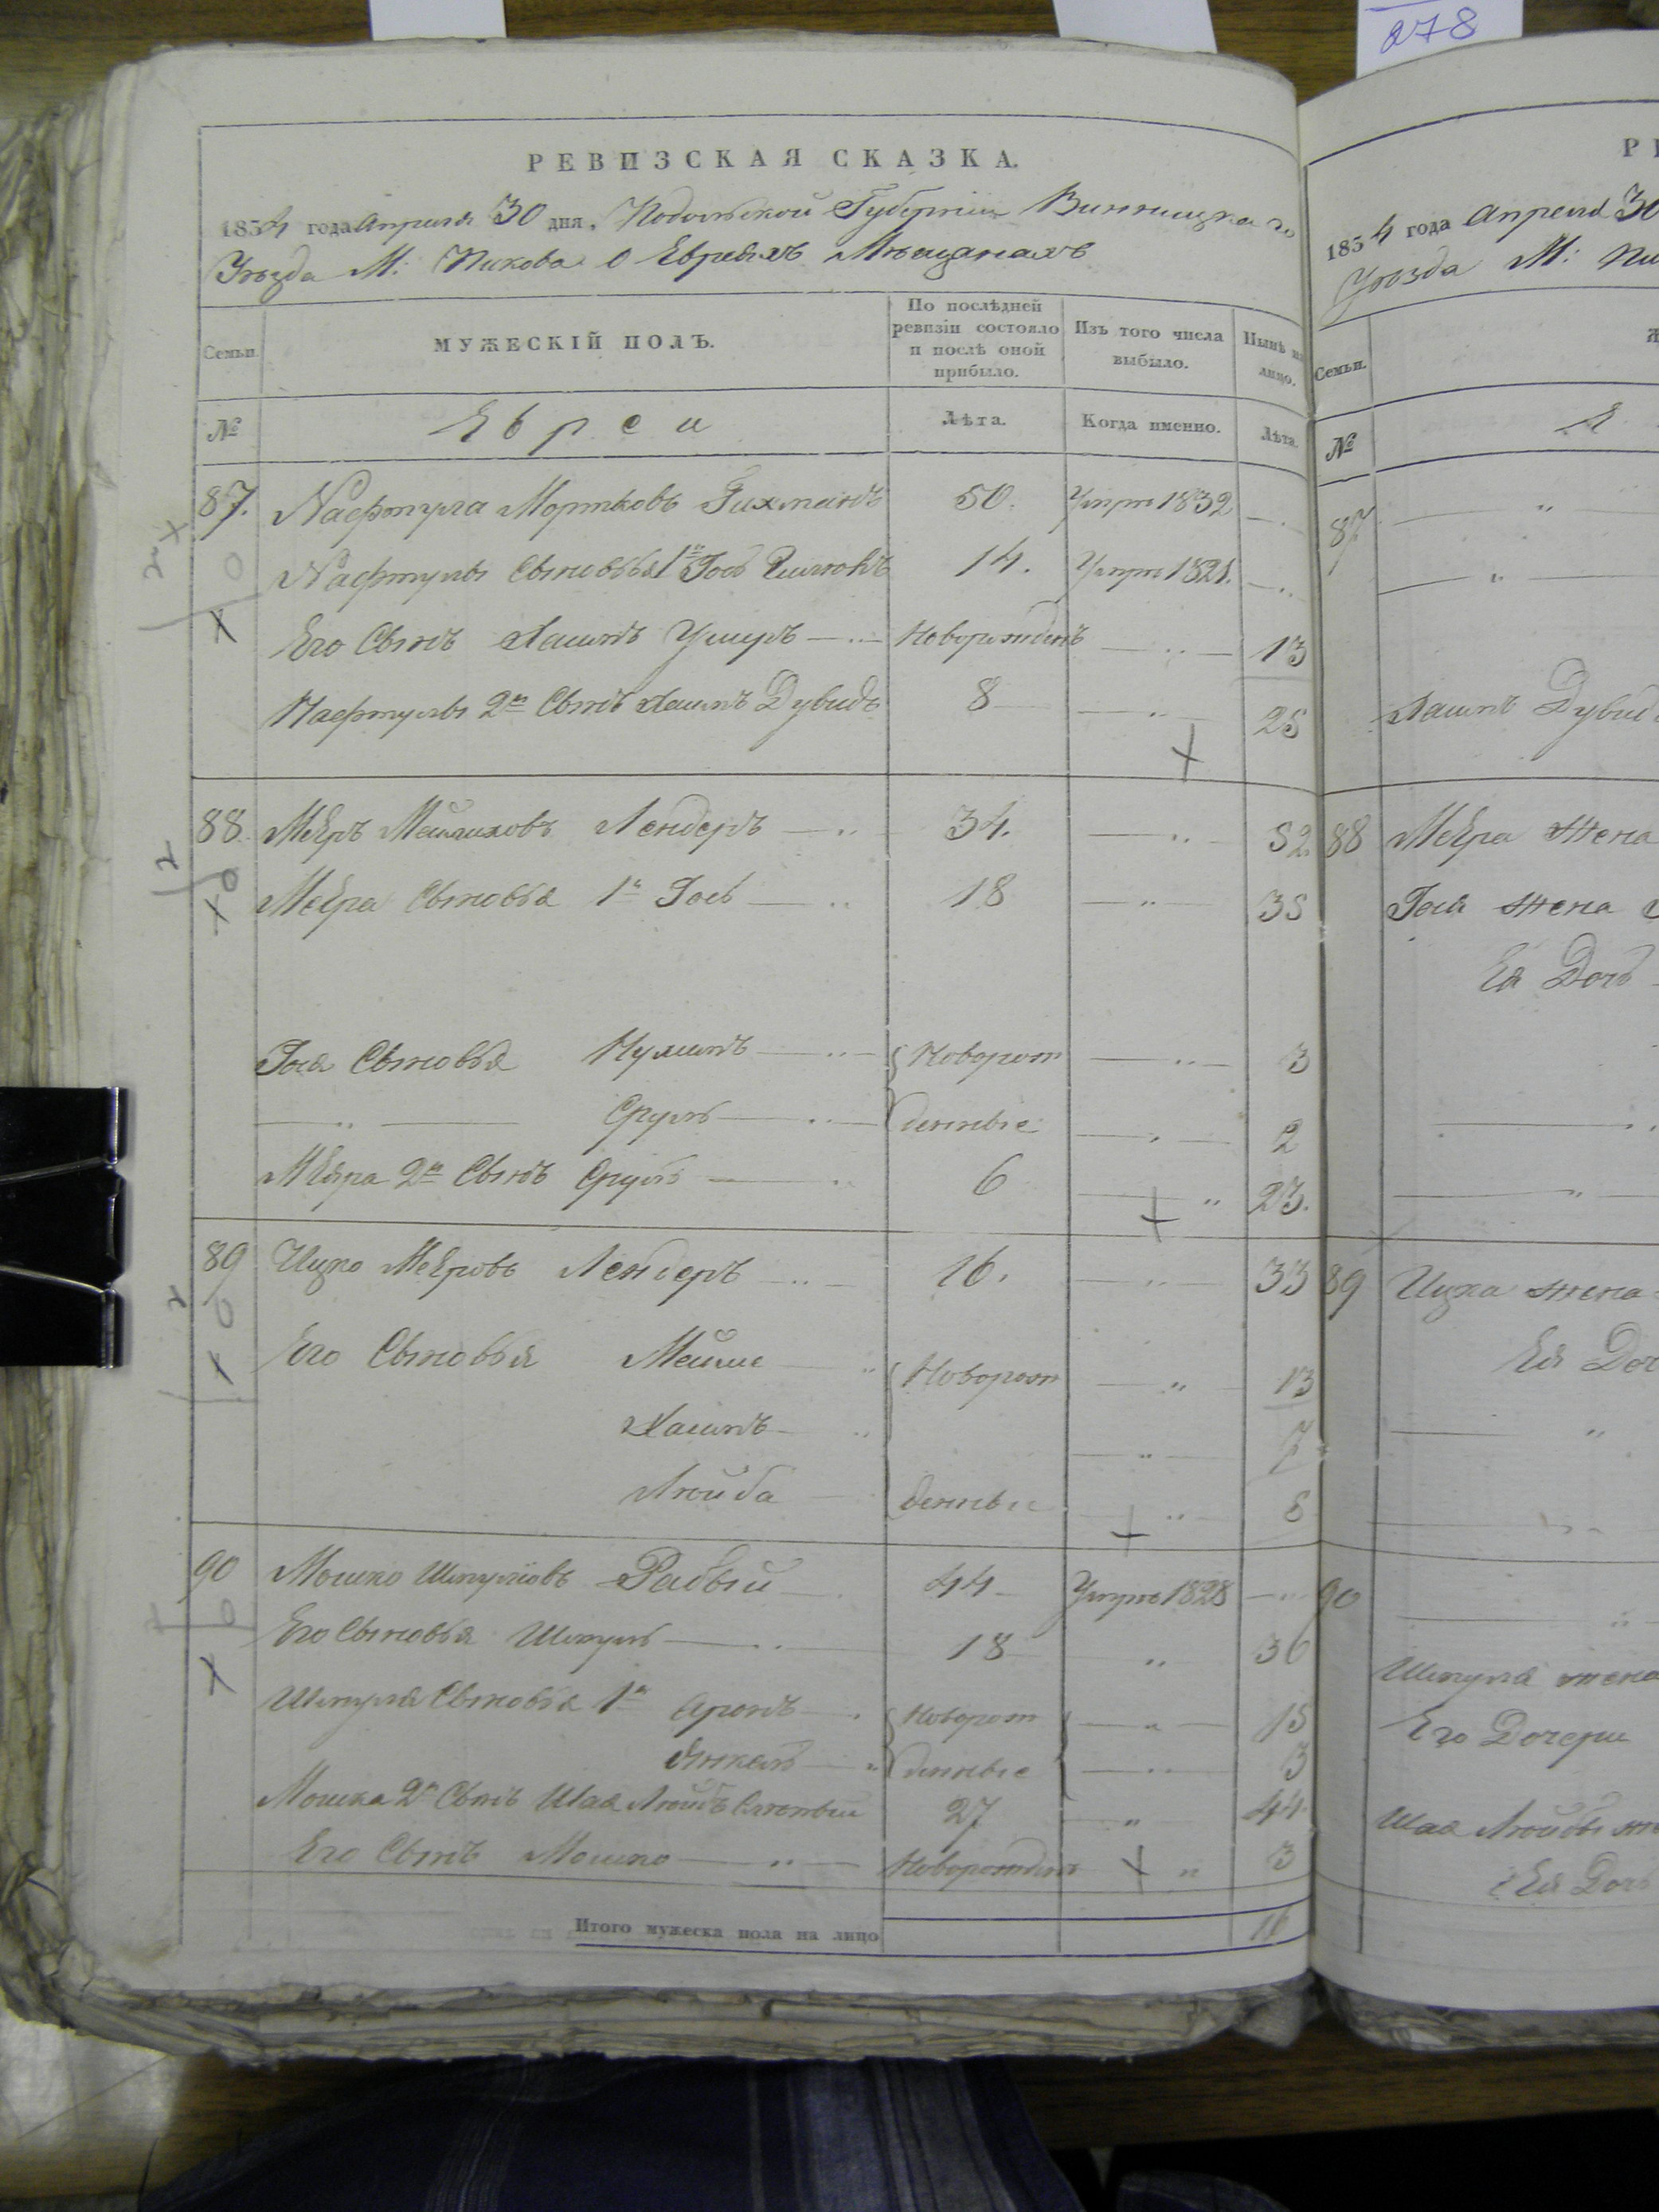 278
РЕВИЗСКАЯ СКАЗКА.
1854 года Апреля 30 дня. Подольской Губернии Винницкаго
Уѣзда М: Пикова О Евреяхъ Мѣщанахъ
Семьи.
МУЖЕСКІЙ ПОЛЪ.
По послѣдней ревизіи состояло и послѣ оной прибыло.
Изъ того числа выбыло.
Нынѣ на лицо.
№
Евреи
Лѣта.
Когда именно.
Лѣта.
87. Нафтула Мортковъ Гихманъ 50. Умръ 1832
Нафтулы Сыновья 1й 14. Умръ
Его Сынъ Хаимъ Новорожденъ 13
Нафтулы 2й Сынъ Хаимъ Дувидъ 8 25
88. Мееръ Лендеръ 34. 52
Меера Сыновья 1й Гось 18 35
Гося Сыновья Нухимъ Новорож 3
Сруль денные 2
Меера 2й Сынъ Сруль 6 23.
89 Ицко Мееровъ Лендеръ 16. 33
Его Сыновья Новорож 13
Хаимъ 7
Лейба денные
90 Мошко Шмулёвъ Рабый 44 Умръ 1828
Его Сыновья Шмуль 18 36
Шмуля Сыновья 1й Аронъ Новорож 15
Янкель денные 3
Мошка 2й Сынъ Шая Лейбъ 27 44
Его Сынъ Мошко Новорожденъ 3
Итого мужеска пола на лицо 16
1854 года Апреля 30
Уѣзда М:
Семьи.
№
87
Хаимъ Дувид
88 Меера жена
Гося жена
Ея Дочь
89 Ицка жена
Ея Доч
90
Шмуля жена
Его Дочери
Шая Лейбы
Ея Дочь